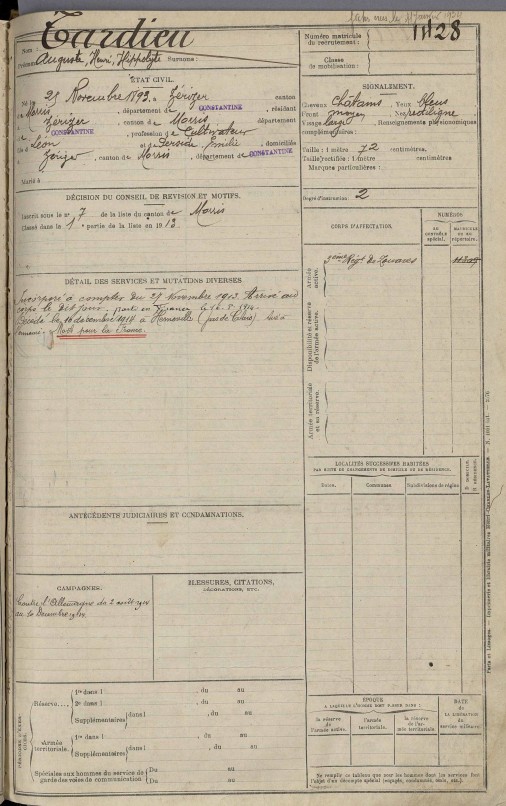 Tardieu
Nom :
Prénoms : Auguste, Henri, Hippolyte Surnoms :
Numéro matricule
du recrutement :
1428
Classe
de mobilisation :
ÉTAT CIVIL.
Né le 25 Novembre 1893, à Zérizer canton
de Morris, département de CONSTANTINE, résidant
à Zérizer, canton de Morris, département
de CONSTANTINE, profession de Cultivateur
fils de Léon et de domiciliés
à Zérizer, canton de Morris, département de CONSTANTINE
Marié à
SIGNALEMENT.
Cheveux Châtains Yeux bleus
Front moyen Nez rectiligne
Visage large Renseignements physionomiques
complémentaires :
Taille : 1 mètre 72 centimètres.
Taille rectifiée : 1 mètre centimètres
Marques particulières :
Degré d'instruction : 2
DÉCISION DU CONSEIL DE REVISION ET MOTIFS.
Inscrit sous le n° 7 de la liste du canton de Morris
Classé dans la 1 partie de la liste en 1913
DÉTAIL DES SERVICES ET MUTATIONS DIVERSES
Incorporé à compter du 27 Novembre 1913 Arrivé au
corps le dit jour.
Décédé le 10 décembre 1914 à Hermaville (pas de Calais)
Mort pour la France.
CORPS D'AFFECTATION.
NUMÉROS
AU CONTRÔLE spécial.
MATRICULE OU AU répertoire.
Armée active.
3ème Régt de Zouaves
Disponibilité et réserve
de l'armée active.
Armée territoriale
et sa réserve.
LOCALITÉS SUCCESSIVES HABITÉES
PAR SUITE DE CHANGEMENTS DE DOMICILE OU DE RÉSIDENCE.
Dates.
Communes
Subdivisions de région
D. DOMICILE.
R. RÉSIDENCE.
ANTÉCÉDENTS JUDICIAIRES ET CONDAMNATIONS.
CAMPAGNES.
Contre l'Allemagne du 2 août 1914
au 10 Décembre 1914
BLESSURES, CITATIONS,
DÉCORATIONS, ETC.
Réserve.... 1re dans l , du au
2e dans l , du au
Supplémentaires dans l , du au
Armée territoriale. 1re dans l , du au
Supplémentaires dans l , du au
Spéciales aux hommes du service de
garde des voies de communication Du au
Du au
ÉPOQUE
A LAQUELLE L'HOMME DOIT PASSER DANS :
la réserve
de l'armée active.
l'armée
territoriale.
la réserve
de l'armée territoriale
DATE
de
LA LIBÉRATION
du
service militaire.